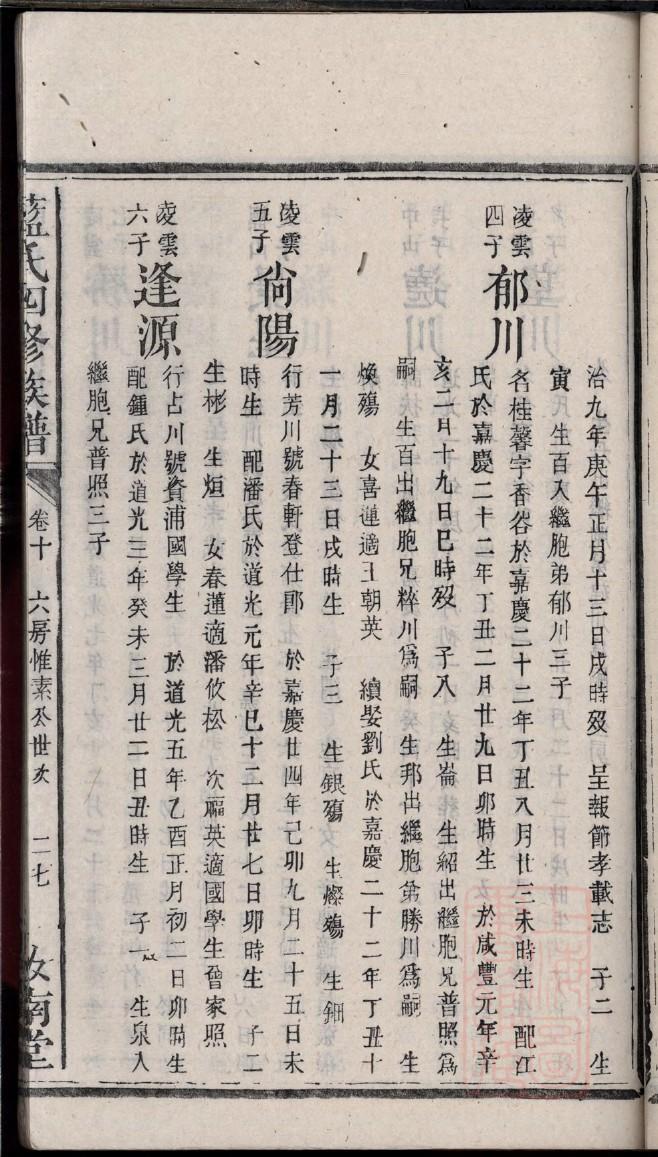 治九年庚午正月十三日戌時歿 呈報節孝載志 子二 生
寅 生百入繼胞弟郁川三子
凌雲四子 郁川 名桂馨字香谷於嘉慶二十二年丁丑八月廿三未時生 配江
氏於嘉慶二十二年丁丑二月廿九日卯時生 於咸豐元年辛
亥二月十九日巳時歿 子八 生崙 生紹出繼胞兄普照爲
嗣 生百出繼胞兄粹川爲嗣 生邦出繼胞弟勝川爲嗣 生
煥殤 女喜蓮適王朝英 續娶劉氏於嘉慶二十二年丁丑十
一月二十三日戌時生 子三 生銀殤 生燦殤 生鈿
凌雲五子 尙陽 行芳川號春軒登仕郎 於嘉慶廿四年己卯九月二十五日未
時生 配潘氏於道光元年辛巳十二月廿七日卯時生 子二
生彬 生烜 女春蓮適潘攸松 次福英適國學生晉家照
凌雲六子 逢源 行占川號資浦國學生 於道光五年乙酉正月初二日卯時生
配鍾氏於道光三年癸未三月廿二日丑時生 子一 生泉入
繼胞兄普照三子
藍氏四修族譜 卷十 六房惟素公世次 二七 汝南堂